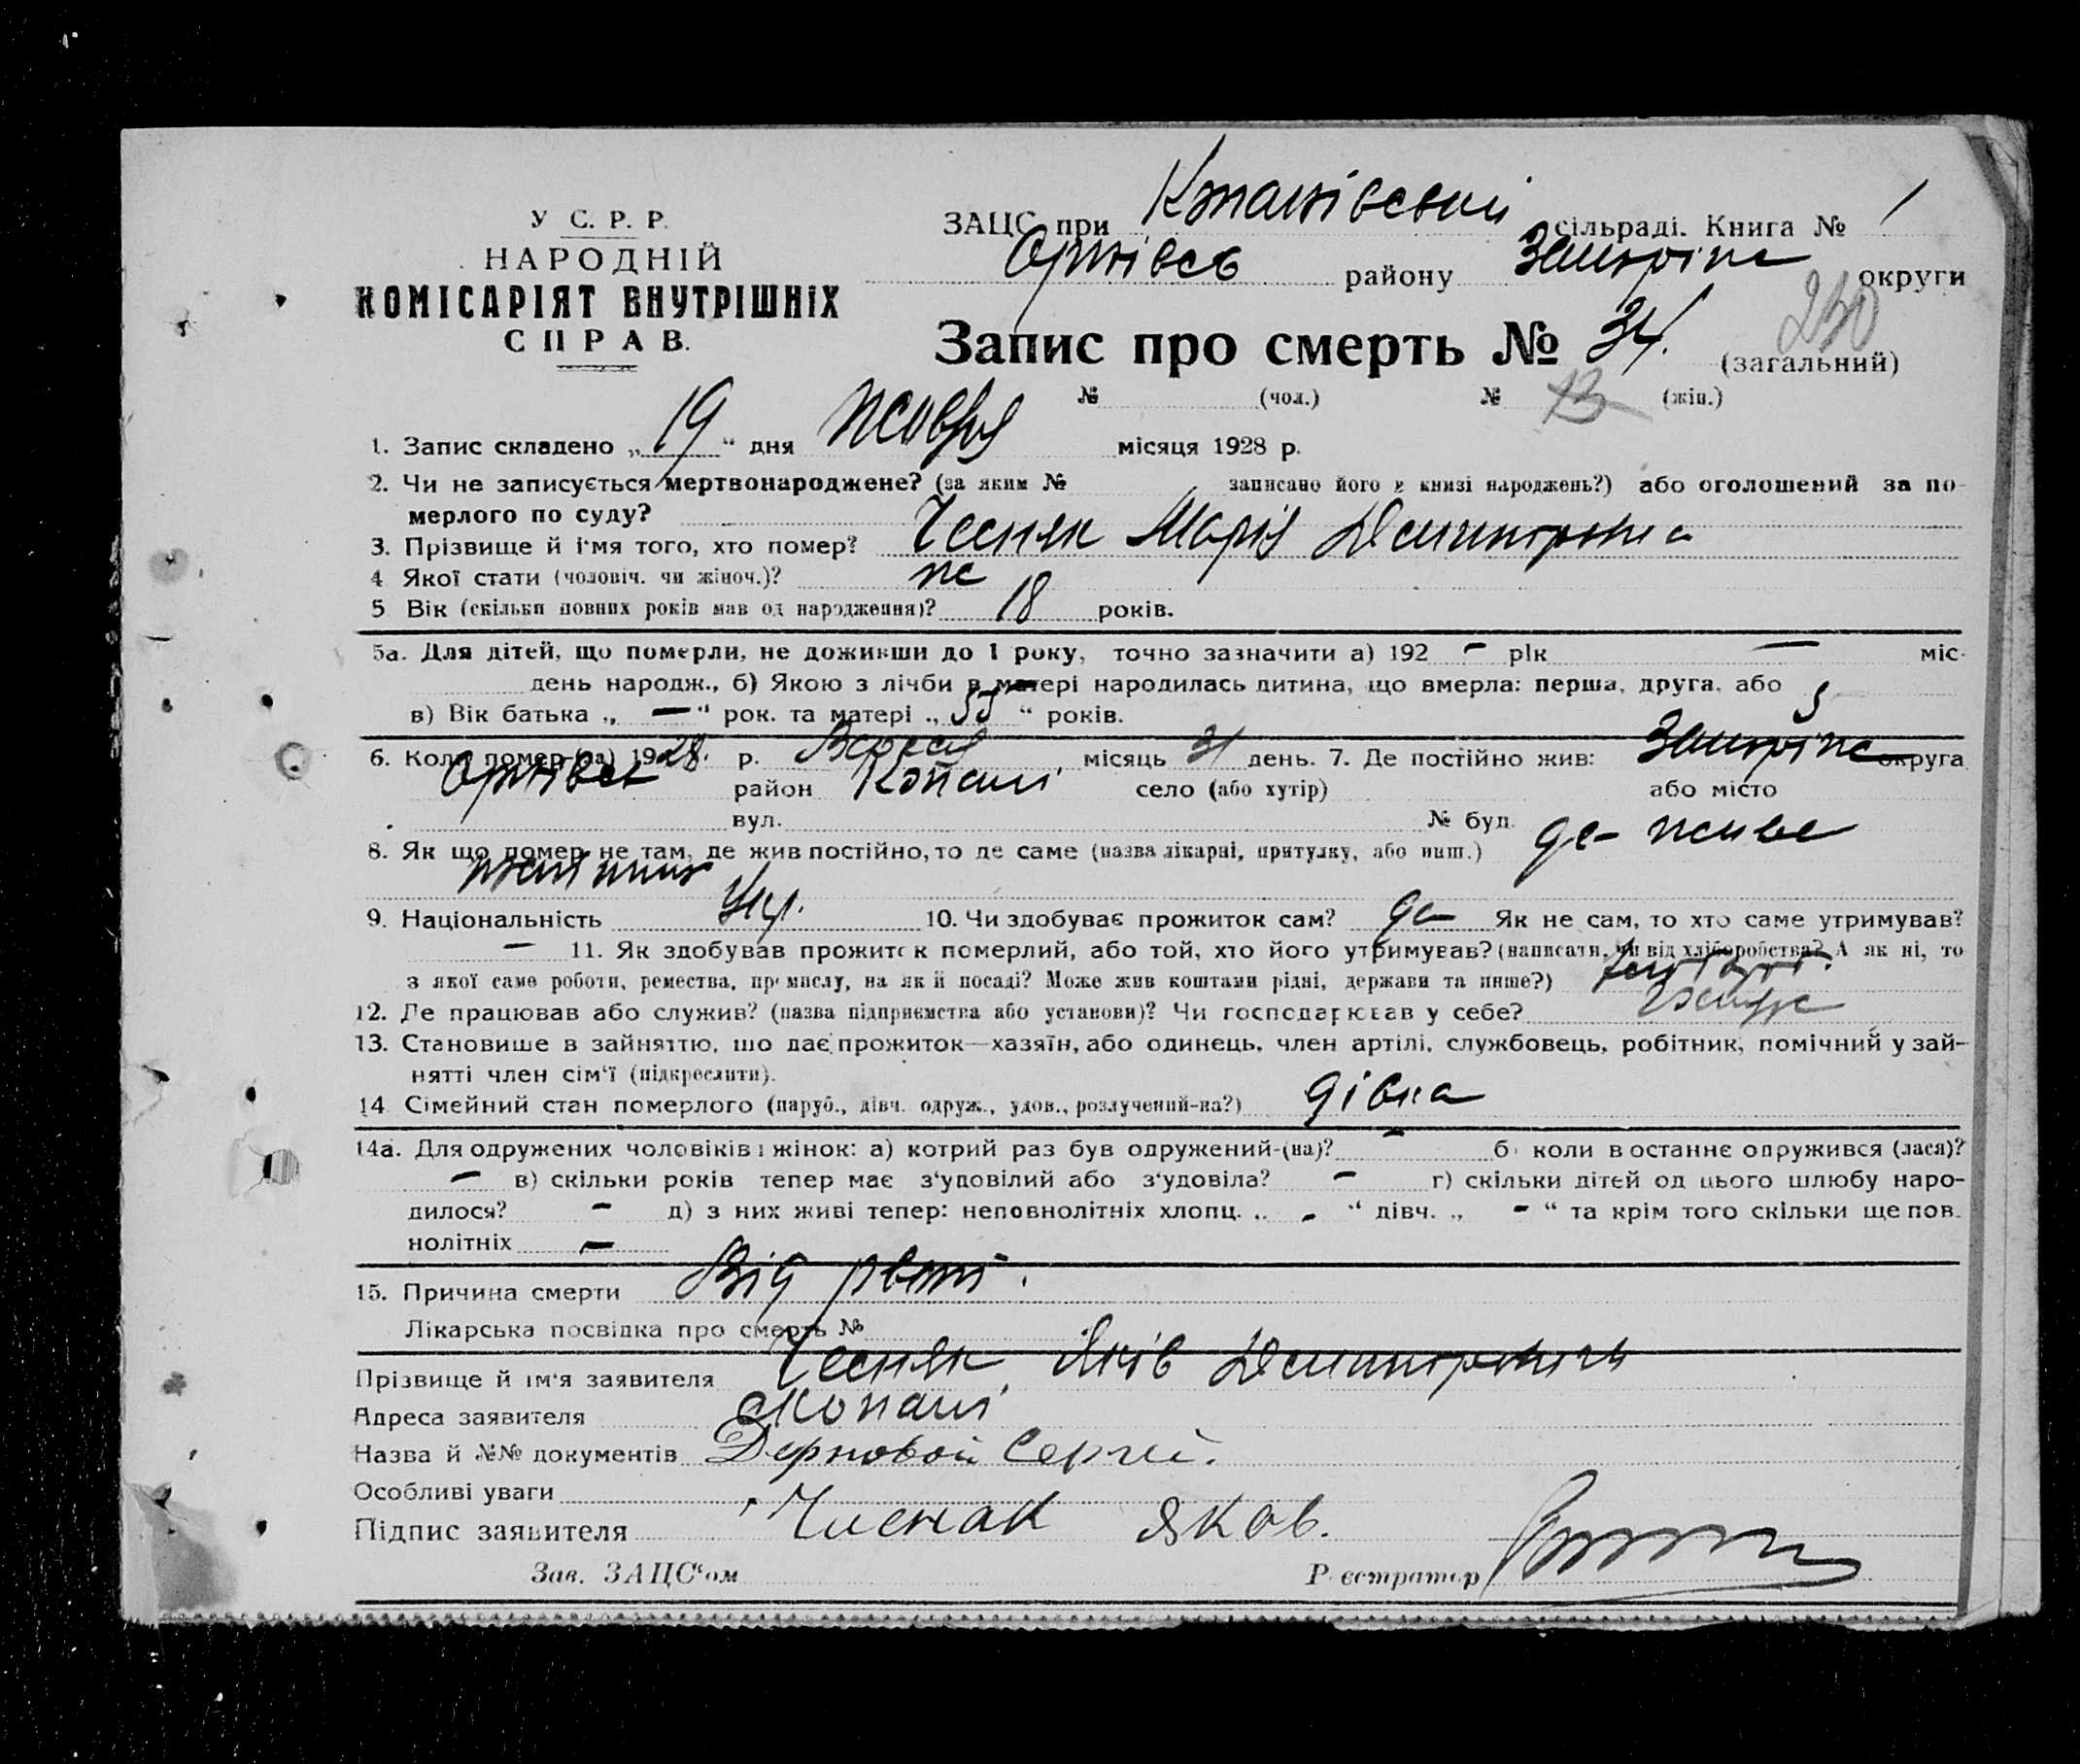 У С. Р. Р.
НАРОДНІЙ
КОМІСАРІЯТ ВНУТРІШНІХ
СПРАВ.
ЗАЦС при сільраді. Книга № 1
району округи
Запис про смерть № 34. (загальний)
230
№ (чол.) № 13 (жін.)
1. Запис складено „ 19 “ дня Жовтня місяця 1928 р.
2. Чи не записується мертвонароджене? (за яким № записано його в книзі народжень?) або оголошений за по-
мерлого по суду?
3. Прізвище й ім'я того, хто помер? Чесняк Марія
4 Якої стати (чоловіч. чи жіноч.)? ж
5 Вік (скільки повних років мав од народження)? 18 років.
5а. Для дітей, що померли, не доживши до 1 року, точно зазначити а) 192 - рік — міс.
день народж., б) Якою з лічби в матері народилась дитина, що вмерла: перша, друга, або 5
в) Вік батька „ — “ рок. та матері „ 55 “ років.
6. Коли помер (ла) 1928. р. місяць 31 день. 7. Де постійно жив: округа
район Копані село (або хутір) або місто
вул. № буд.
8. Як що помер не там, де жив постійно, то де саме (назва лікарні, притулку, або инш.) де живе
9. Національність Укр. 10. Чи здобував прожиток сам? да Як не сам, то хто саме утримував?
— 11. Як здобував прожиток померлий, або той, хто його утримував? (написати, чи від хліборобства? А як ні, то
з якої саме роботи, ремества, промислу, на якій посаді? Може жив коштами рідні, держави та инше?)
12. Де працював або служив? (назва підприємства або установи)? Чи господарював у себе?
13. Становище в зайняттю, що дає прожиток—хазяїн, або одинець, член артілі, службовець, робітник, помічний у зай-
нятті член сім'ї (підкреслити).
14 Сімейний стан померлого (паруб., дівч. одруж., удов., розлучений-на?) дівка
14а. Для одружених чоловіків і жінок: а) котрий раз був одружений-(на)? - б) коли востаннє одружився (лася)?
— в) скільки років тепер має з'удовілий або з'удовіла? - г) скільки дітей од цього шлюбу наро-
дилося? - д) з них живі тепер: неповнолітніх хлопц. „ - “ дівч. „ - “ та крім того скільки ще пов.
нолітніх —
15. Причина смерти Від
Лікарська посвідка про смерть №
Прізвище й ім'я заявителя Чесняк Яків
Адреса заявителя Копані
Назва й №№ документів Дерновой Сергей.
Особливі уваги
Підпис заявителя Чиснак Яков.
Зав. ЗАЦС'ом Реєстратор